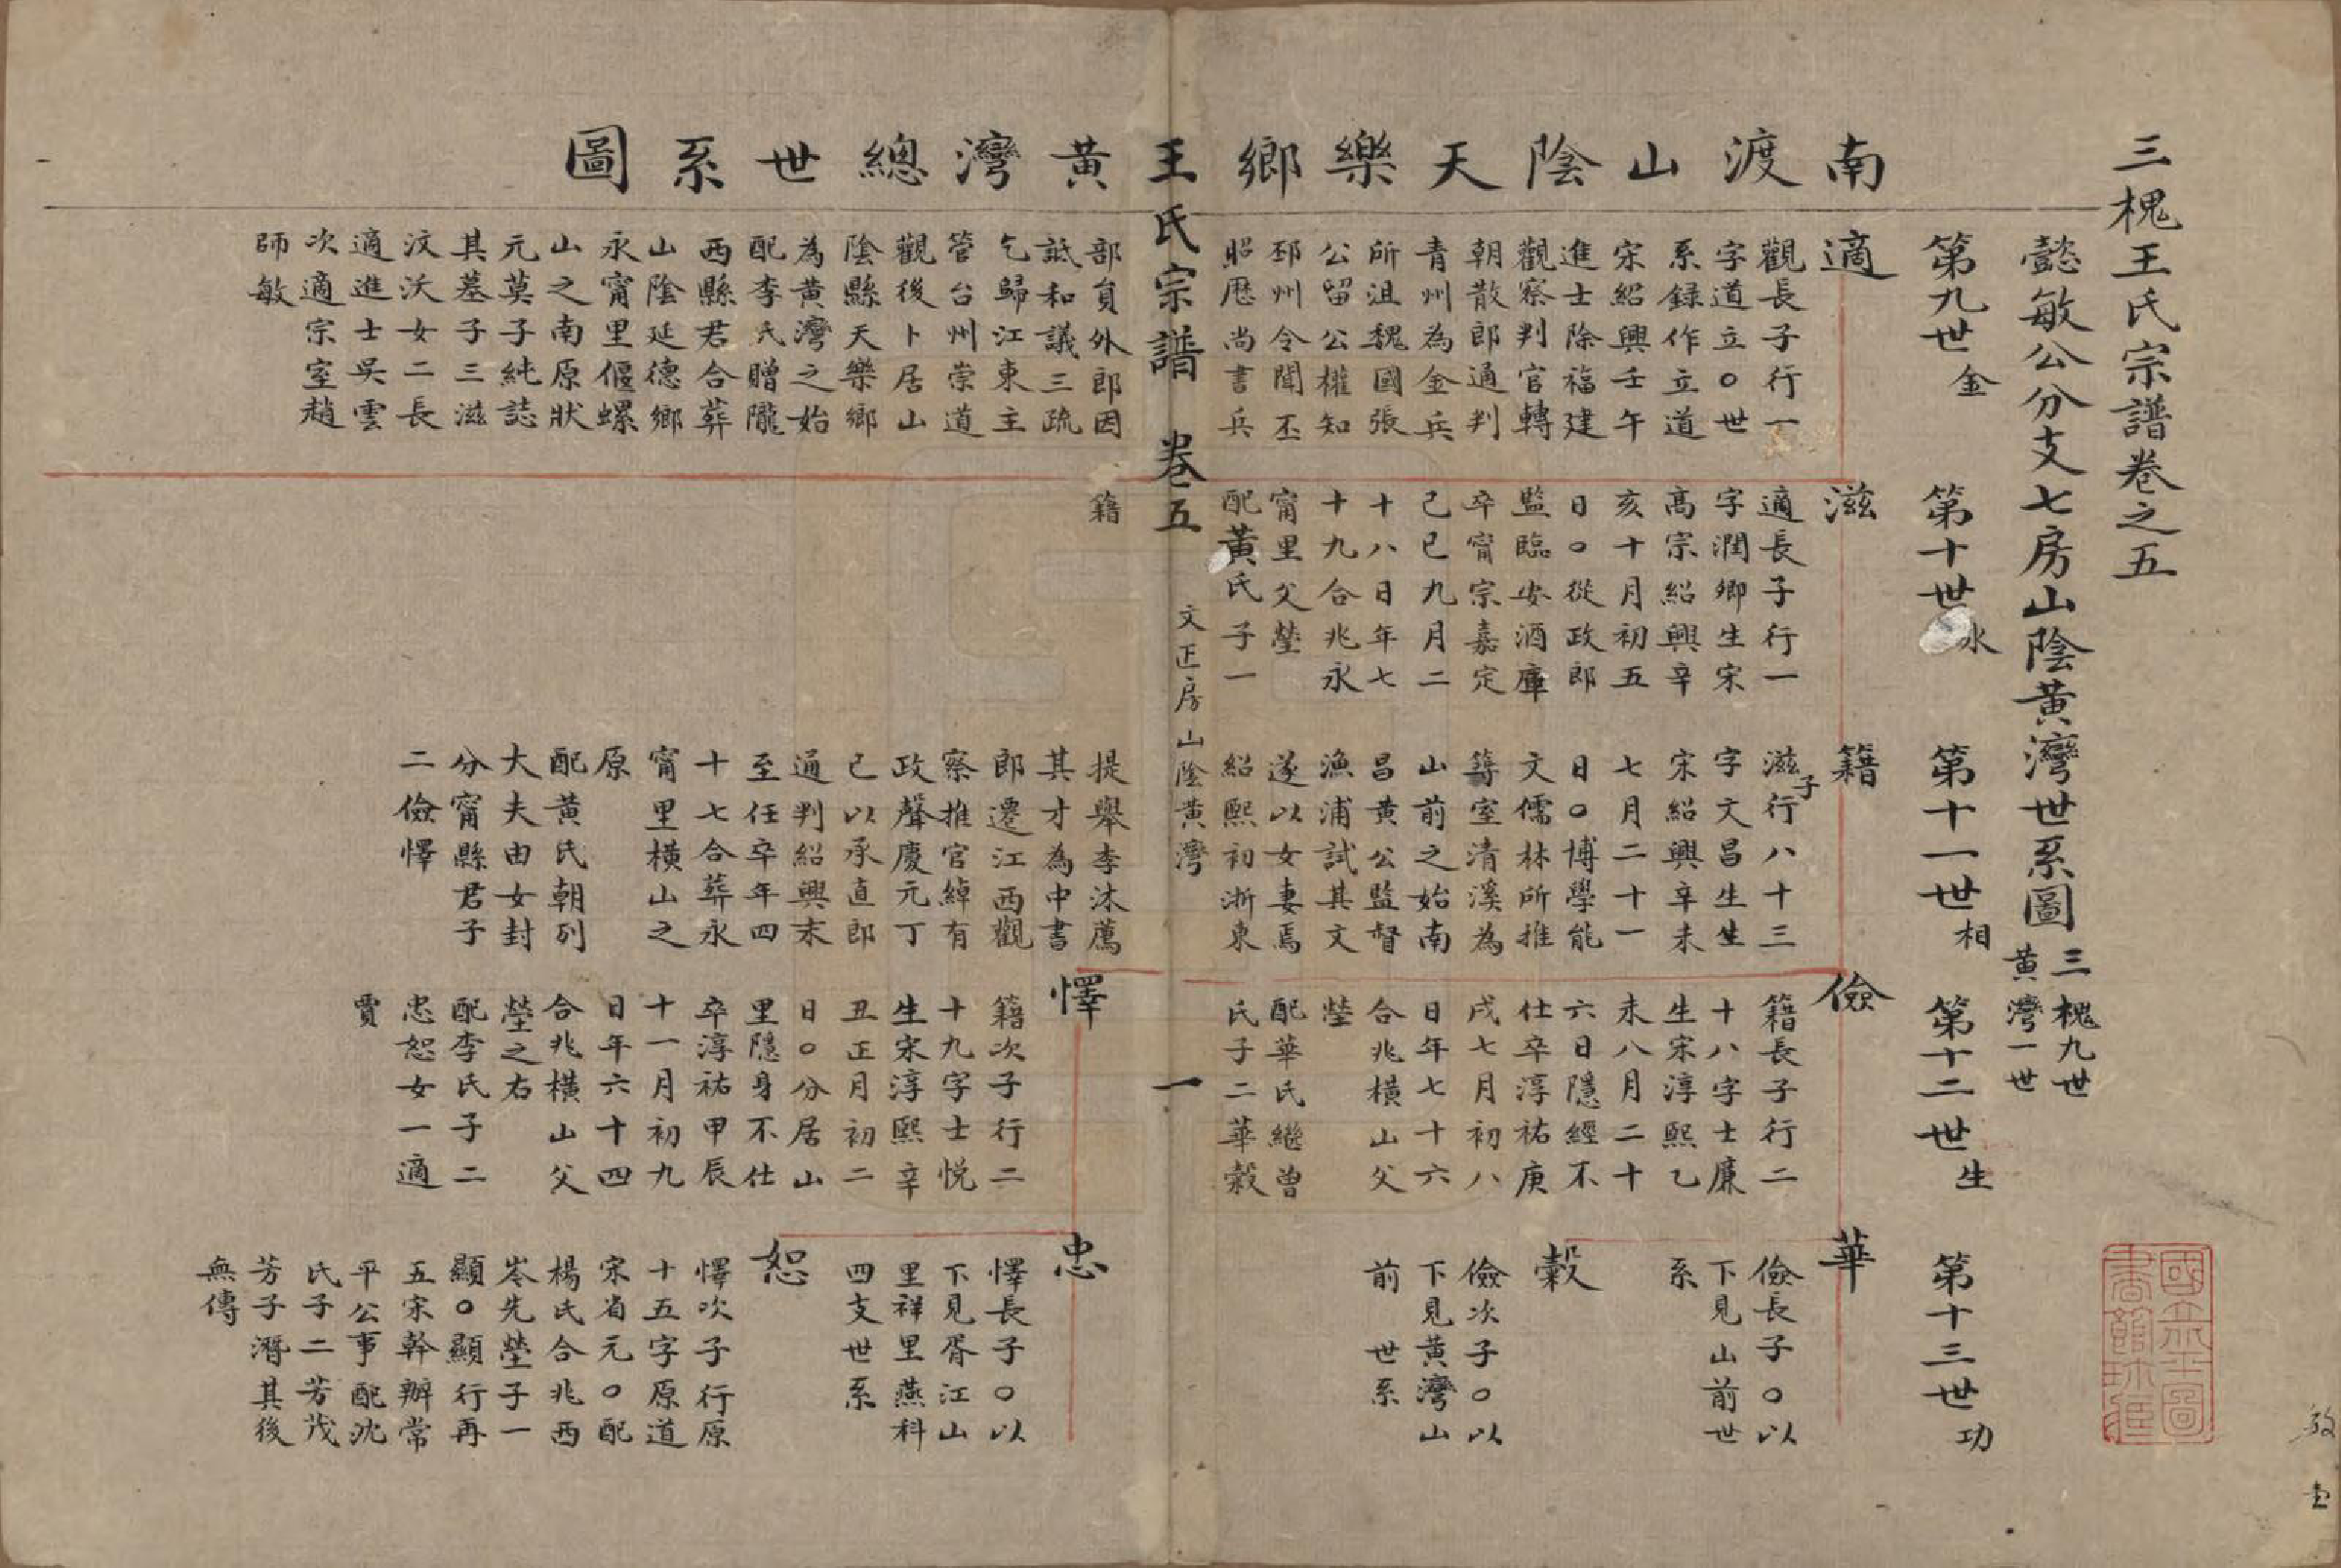 三槐王氏宗譜卷之五
懿敏公分支七房山陰黃灣世系圖
三槐九世
黃灣一世
南渡山陰天樂鄉黃灣總世系圖
第九世金
適
觀長子行一
字道立○世
系録作立道
宋紹興壬午
進士除福建
觀察判官轉
朝散郎通判
青州為金兵
所沮魏國張
公留公權知
邳州令聞丕
昭歴尚書兵
部員外郎因
詆和議三疏
乞歸江東主
管台州崇道
觀後卜居山
陰縣天樂鄉
為黃灣之始
配李氏贈隴
西縣君合葬
山陰延德鄉
永甯里偃螺
山之南原狀
元莫子純誌
其墓子三滋
汶沃女二長
適進士吳雲
次適宗室趙
師敏
第十世水
滋
適長子行一
字潤卿生宋
高宗紹興辛
亥十月初五
日○從政郎
監臨安酒庫
卒甯宗嘉定
己巳九月二
十八日年七
十九合兆永
甯里父塋
配黃氏子一
籍
第十一世相
籍
滋子行八十三
字文昌生生
宋紹興辛未
七月二十一
日○博學能
文儒林所推
籌室清溪為
山前之始南
昌黃公監督
漁浦試其文
遂以女妻焉
紹熙初浙東
提舉李沐薦
其才為中書
郎遷江西觀
察推官綽有
政聲慶元丁
巳以承直郎
通判紹興末
至任卒年四
十七合葬永
甯里橫山之
原
配黃氏朝列
大夫由女封
分甯縣君子
二儉懌
第十二世生
儉
籍長子行二
十八字士廉
生宋淳熙乙
未八月二十
六日隱經不
仕卒淳祐庚
戌七月初八
日年七十六
合兆橫山父
塋
配華氏繼曾
氏子二華穀
懌
籍次子行二
十九字士悅
生宋淳熙辛
丑正月初二
日○分居山
里隱身不仕
卒淳祐甲辰
十一月初九
日年六十四
合兆橫山父
塋之右
配李氏子二
忠恕女一適
賈
第十三世功
華
儉長子○以
下見山前世
系
穀
儉次子○以
下見黃灣山
前世系
忠
懌長子○以
下見胥江山
里祥里燕科
四支世系
恕
懌次子行原
十五字原道
宋省元○配
楊氏合兆西
岑先塋子一
顯○顯行再
五宋幹辦常
平公事配沈
氏子二芳茂
芳子潛其後
無傳
王氏宗譜 卷五 文正房山陰黃灣 一
國立北平圖書館珍藏